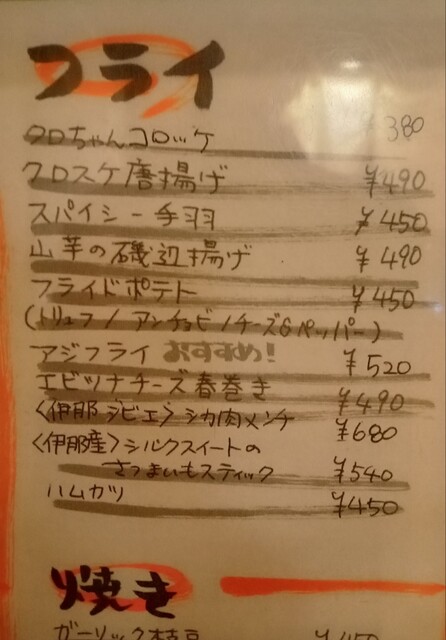 フライ
クロちゃんコロッケ ¥380
クロスケ唐揚げ ¥490
スパイシー手羽 ¥450
山芋の磯辺揚げ ¥490
フライドポテト ¥450
(トリュフ/アンチョビ/チーズ&ペッパー)
アジフライ おすすめ! ¥520
エビツナチーズ春巻き ¥490
〈伊那ジビエ〉シカ肉メンチ ¥680
〈伊那産〉シルクスイートの
さつまいもスティック ¥540
ハムカツ ¥450
焼き
ガーリック枝豆 ¥450